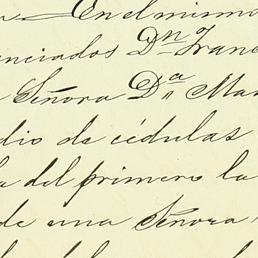 En el mismo
enciados Dn Franc
Señora Da Mar
dio de cédulas
la del primero la
de una Señora